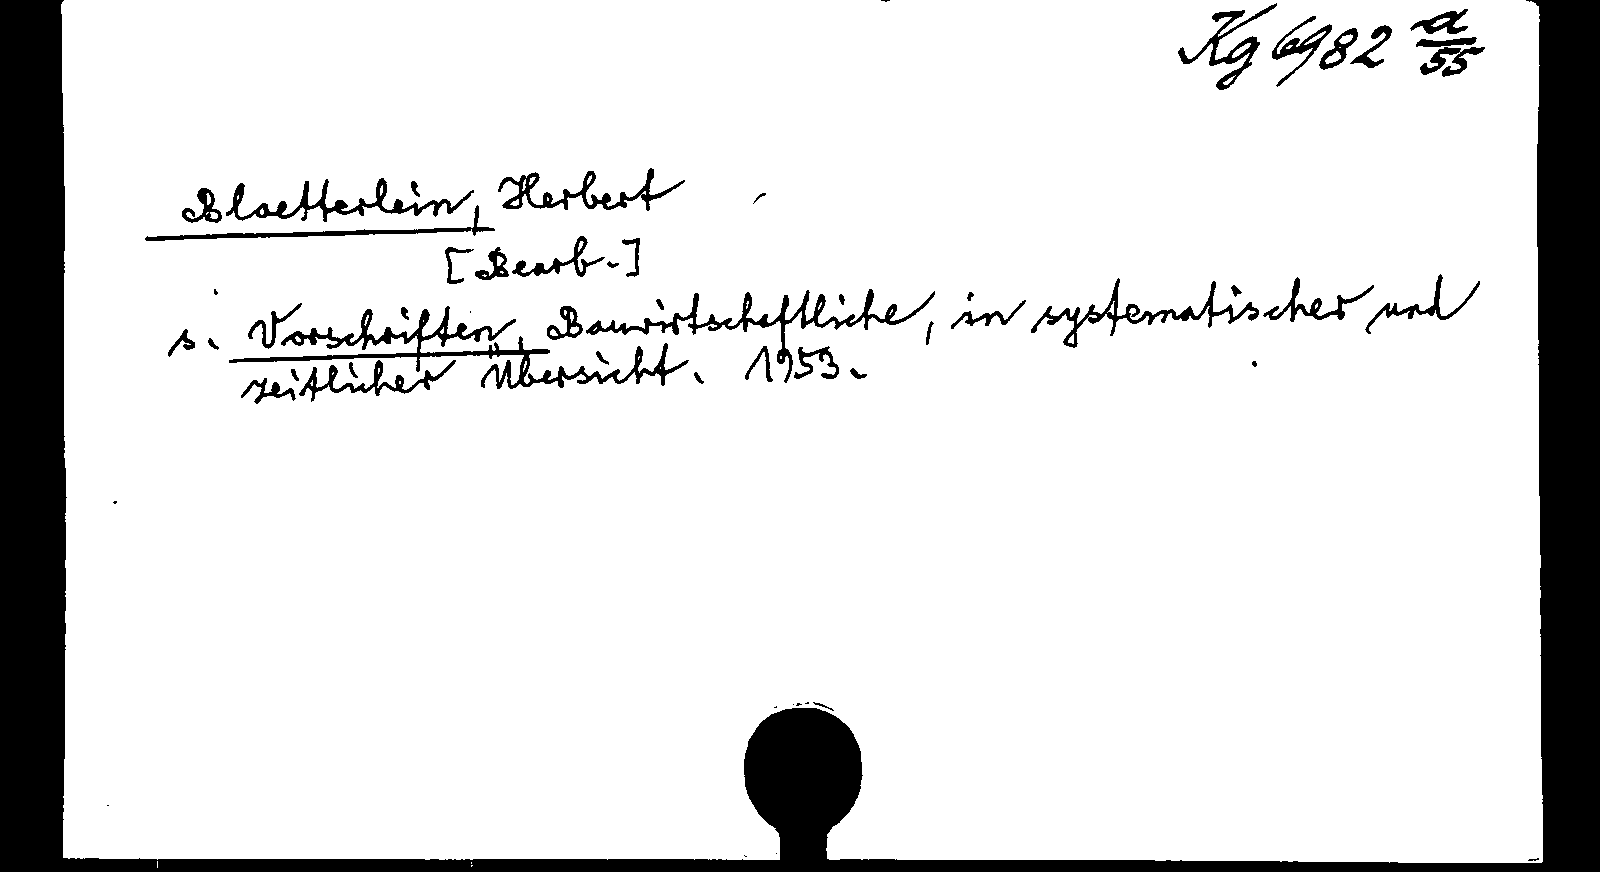 Kg 6982 a/55
Blaetterlein, Herbert
[Bearb.]
s. Vorschriften, Bauwirtschaftliche, in systematischer und
zeitlicher Übersicht. 1953.